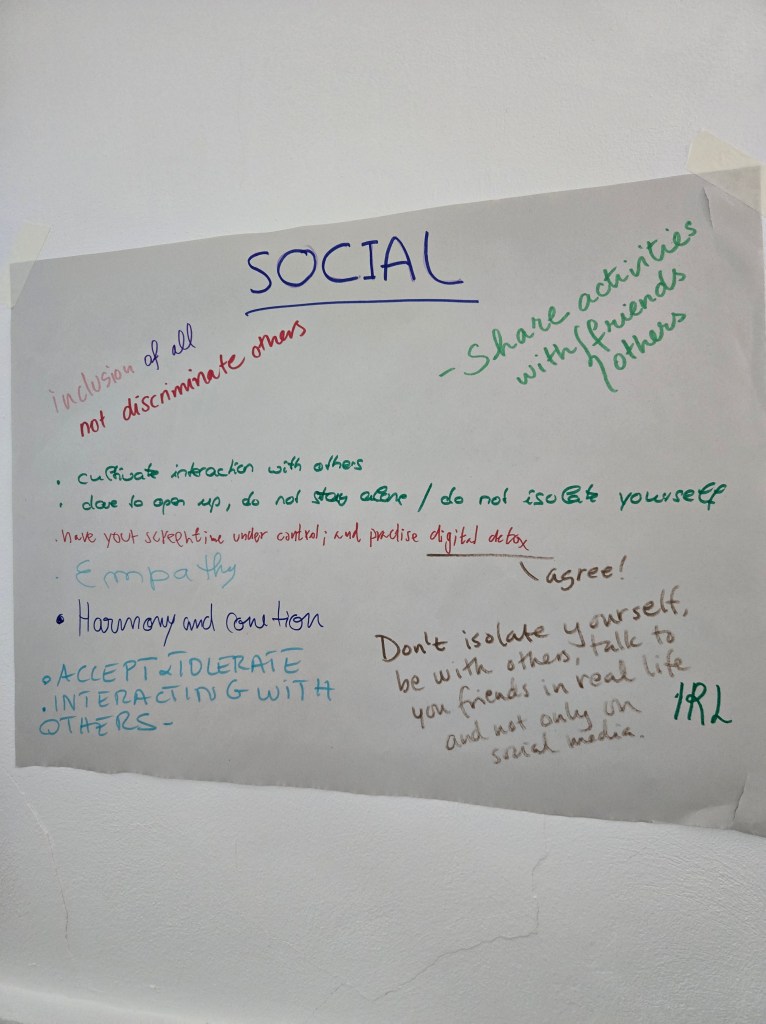 SOCIAL
inclusion of all
not discriminate others
- Share activities
with friends
/ others
• cultivate interaction with others
• dare to open up, do not stay alone / do not isolate yourself
. have your screentime under control; and practise digital detox
agree!
. Empathy
• Harmony and conetion
• ACCEPT & TOLERATE
. INTERACTING WITH
OTHERS-
Don't isolate yourself,
be with others, talk to
you friends in real life
and not only on
social media.
IRL